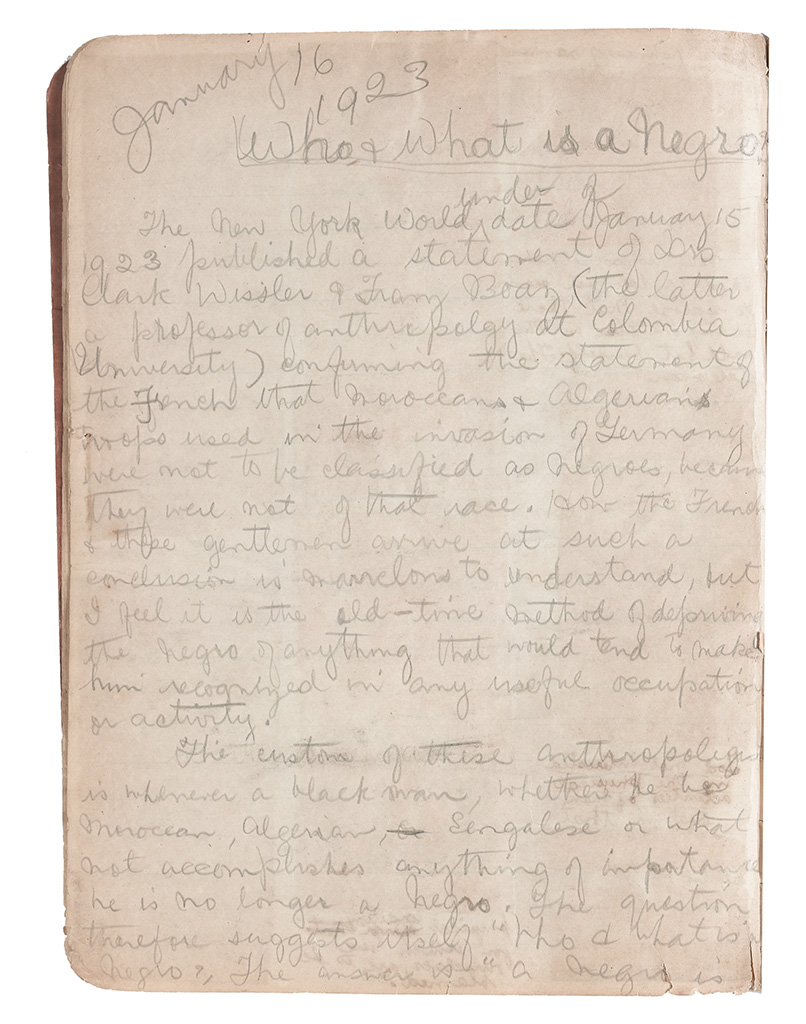 January 16
1923
Who & What is a Negro?
under of
The New York World, date January 15
1923 published a statement of Drs
Clark Wissler & Franz Boaz, (the latter
a professor of anthropolgy at Colombia
University) confirming the statement of
the French that Moroccans & Algerians
troops used in the invasion of Germany
were not to be classified as Negroes, because
they were not of that race. How the French
& these gentlemen arrive at such a
conclusion is marvelous to understand, but
I feel it is the old-time method of depriving
the Negro of anything that would tend to make
him recognized in any useful occupation
or activity.
The custom of these anthropoligist
is whenever a black man, whether he be
Moroccan, Algerian, or Sengalese or what
not accomplishes anything of importance
he is no longer a Negro. The question
therefore suggests itself "Who & what is a
Negro?, The answer is "a Negro is